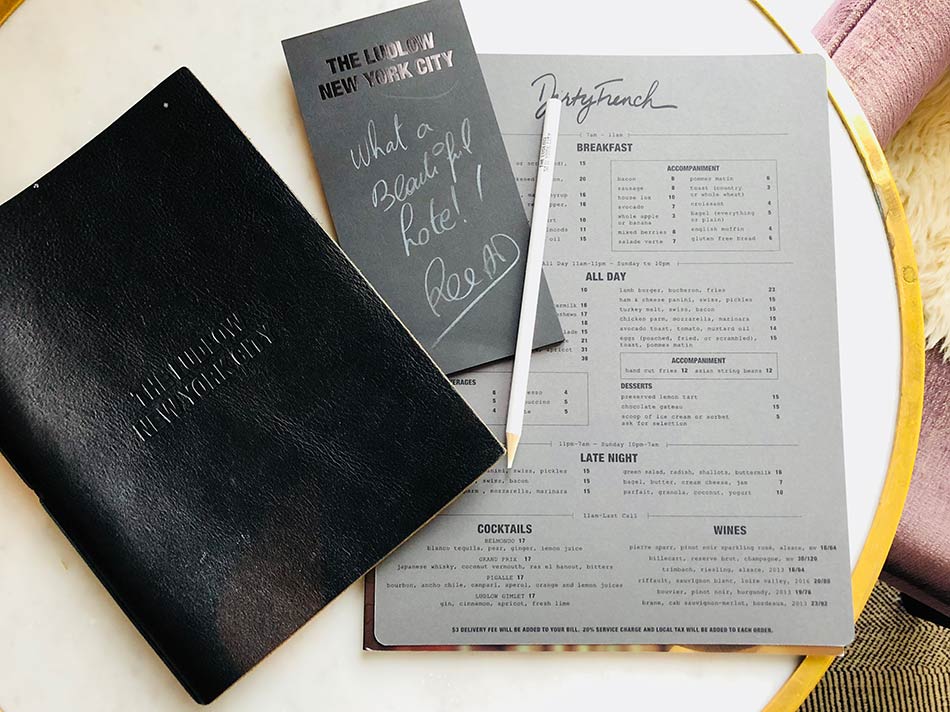 THE LUDLOW
NEW YORK CITY
What a
Beautiful
hotel!!
THE LUDLOW
NEW YORK CITY
Dirty French
7am - 11am
BREAKFAST
15
20
16
16
10
11
15
ACCOMPANIMENT
bacon 8
sausage 8
house lox 10
avocado 7
whole apple 3
or banana
mixed berries 8
salade verte 7
pommes matin 6
toast (country 3
or whole wheat)
croissant 4
Bagel (everything 5
or plain)
english muffin 4
gluten free bread 6
All Day 11am-11pm - Sunday to 10pm
ALL DAY
10
16
17
15
21
31
38
lamb burger, bucheron, fries 23
ham & cheese panini, swiss, pickles 15
turkey melt, swiss, bacon 15
chicken parm, mozzarella, marinara 15
avocado toast, tomato, mustard oil 14
eggs (poached, fried, or scrambled), 15
toast, pommes matin
ACCOMPANIMENT
hand cut fries 12 asian string beans 12
DESSERTS
preserved lemon tart 15
chocolate gateau 15
scoop of ice cream or sorbet 5
ask for selection
11pm-7am - Sunday 10pm-7am
LATE NIGHT
swiss, pickles 15
swiss, bacon 15
parm, mozzarella, marinara 15
green salad, radish, shallots, buttermilk 16
bagel, butter, cream cheese, jam 7
parfait, granola, coconut, yogurt 10
11am-Last Call
COCKTAILS
BELMONDO 17
blanco tequila, pear, ginger, lemon juice
GRAND PRIX 17
japanese whisky, coconut vermouth, ras el hanout, bitters
PIGALLE 17
bourbon, ancho chile, campari, aperol, orange and lemon juices
LUDLOW GIMLET 17
gin, cinnamon, apricot, fresh lime
WINES
pierre sparr, pinot noir sparkling rosé, alsace, nv 16/64
billecart, reserve brut, champagne, nv 30/120
trimbach, riesling, alsace, 2013 16/64
riffault, sauvignon blanc, loire valley, 2016 20/80
bouvier, pinot noir, burgundy, 2013 19/76
brane, cab sauvignon-merlot, bordeaux, 2013 23/92
$3 DELIVERY FEE WILL BE ADDED TO YOUR BILL. 20% SERVICE CHARGE AND LOCAL TAX WILL BE ADDED TO EACH ORDER.